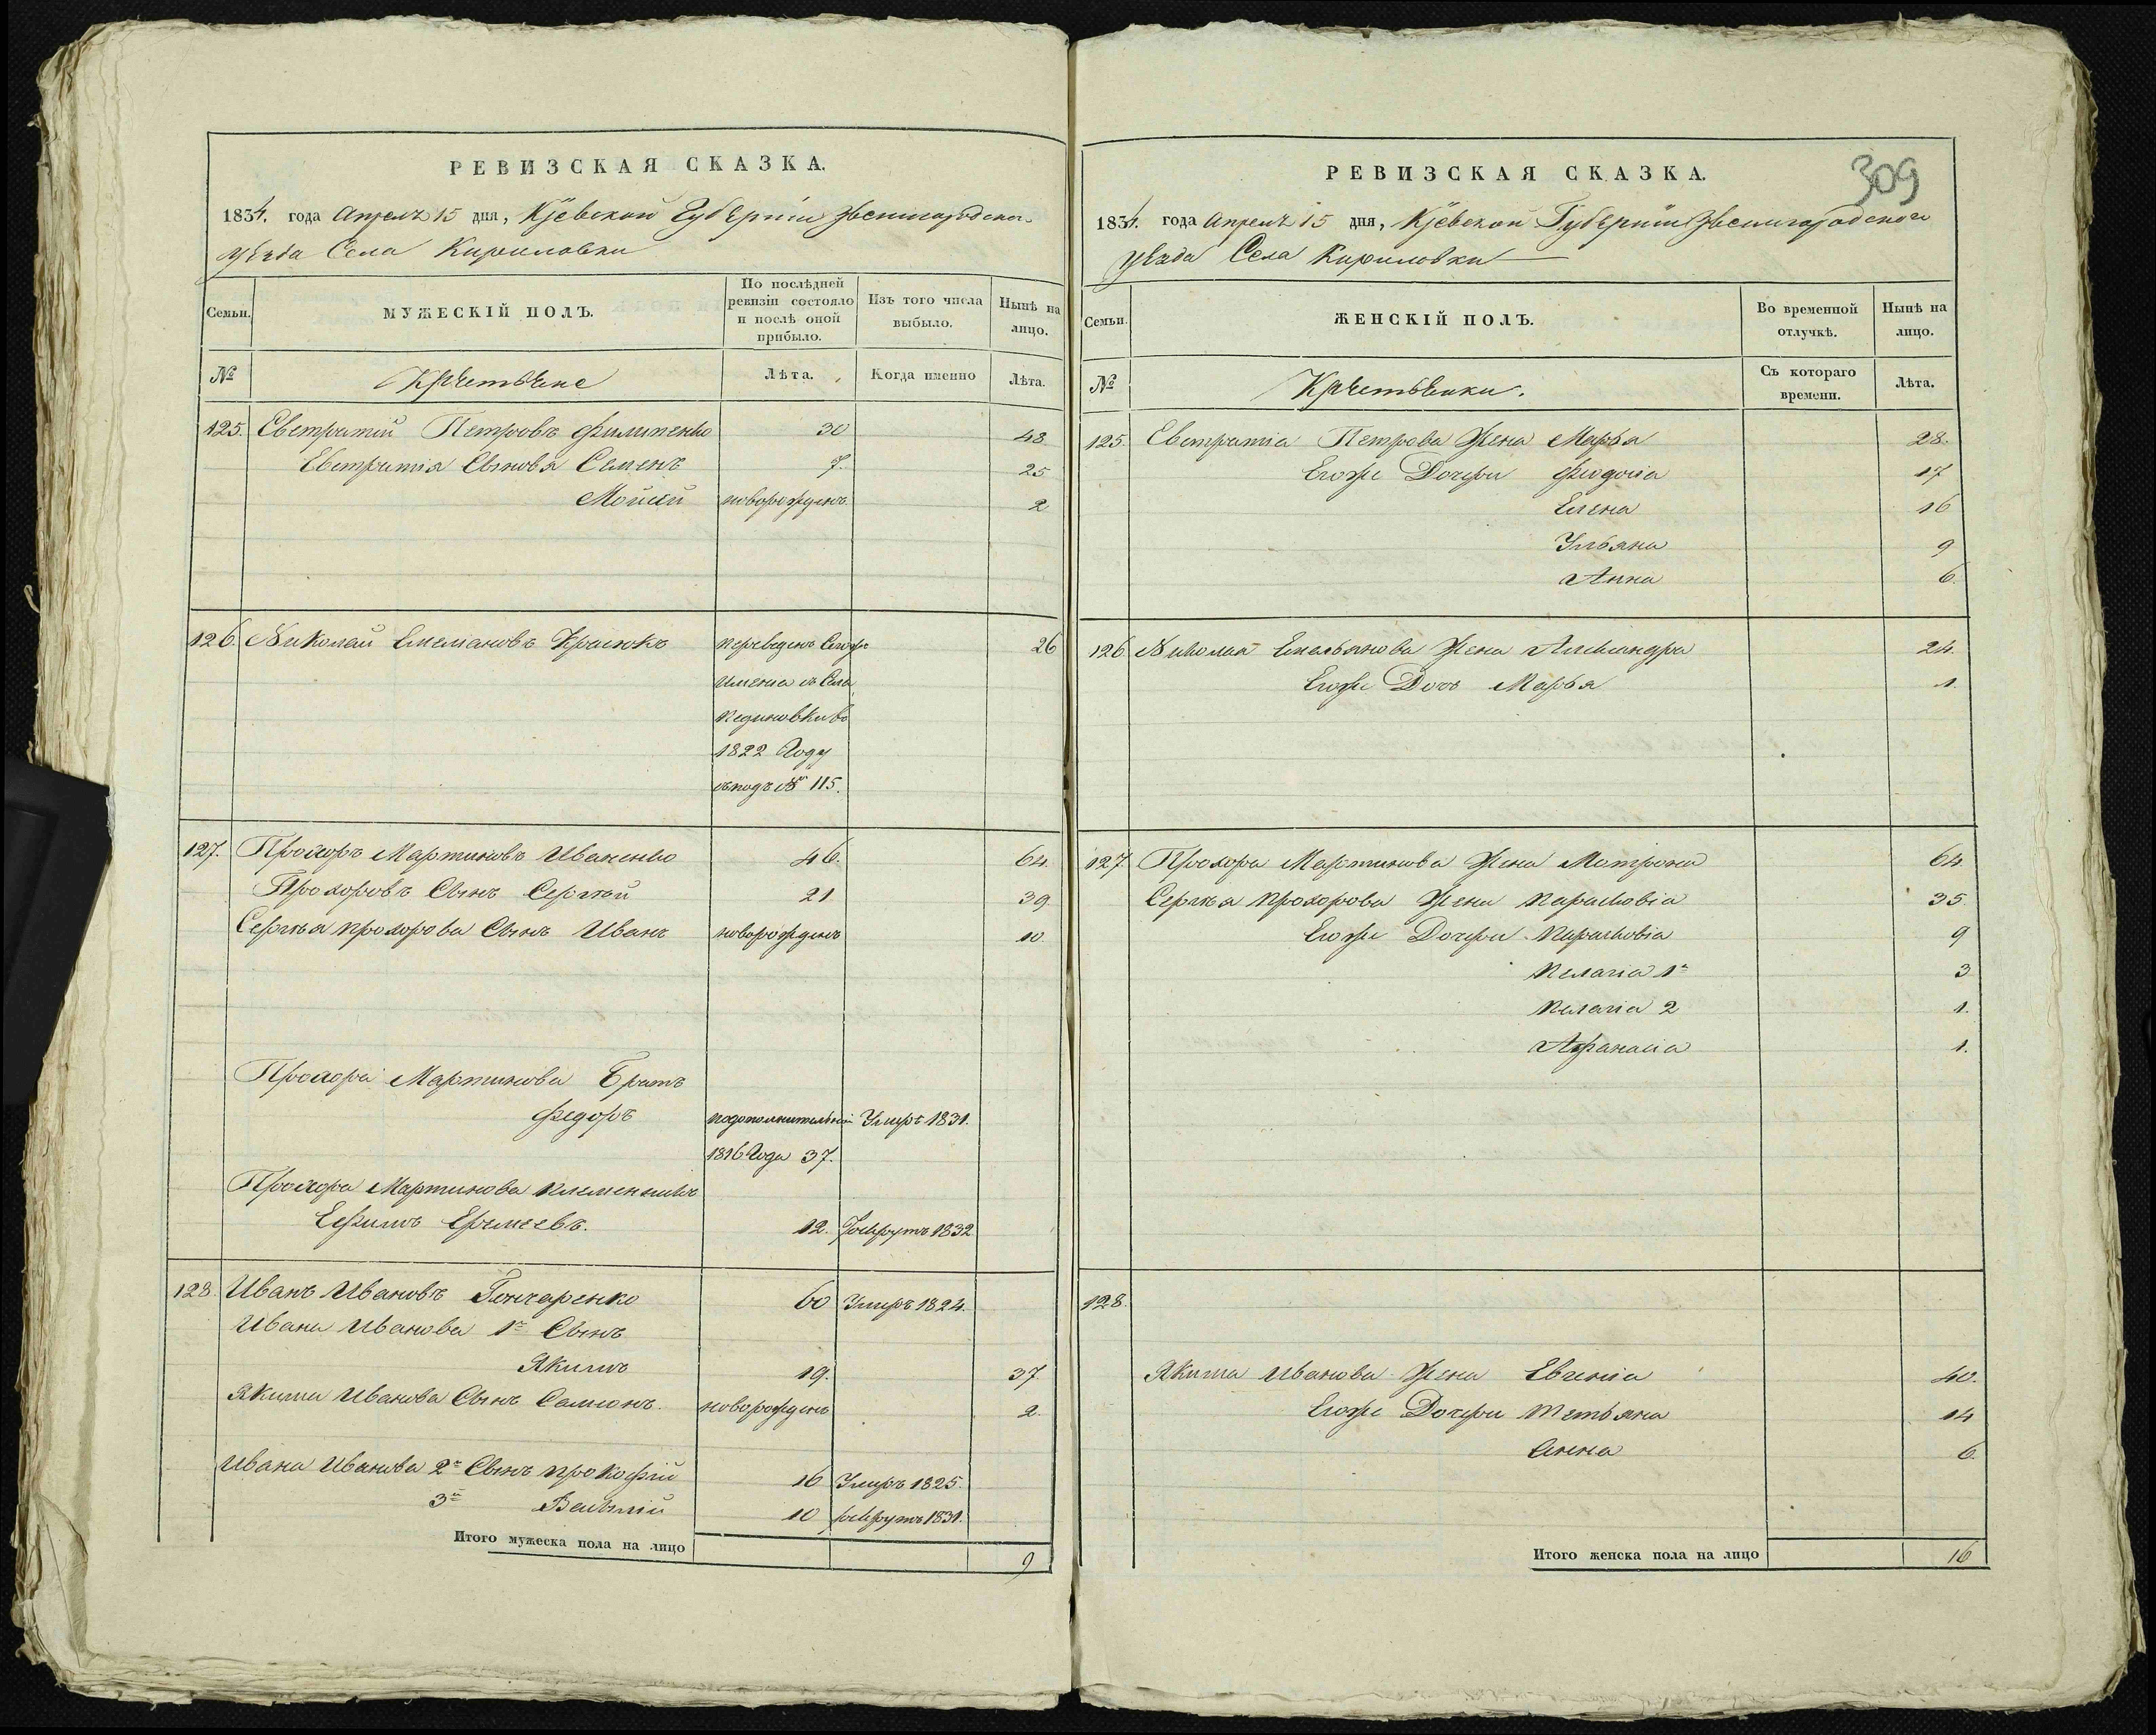 РЕВИЗСКАЯ СКАЗКА.
1834. года Апрелъ 15 дня, Кіевской Губерніи Звенигородскаго
уѣзда Села Кириловки
Семьи.
МУЖЕСКІЙ ПОЛЪ.
По послѣдней ревизіи состояло и послѣ оной прибыло.
Изъ того числа выбыло.
Нынѣ на лицо.
№
Крѣстьѣне
Лѣта.
Когда именно
Лѣта.
125. Евстратій Петровъ Филипенко 30 48
Евстратія Сыновя Семенъ 7. 25
Мойсій новорожденъ 2
126. Николай Емеліановъ Краснокъ переведенъ Сегоже 26
Именія съ Села
Пединовки во
1822 Году
съподъ № 115.
127. Прохоръ Мартиновъ Иваненко 46. 64.
Прохоровъ Сынъ Сергѣй 21 39
Сергѣя Прохорова Сынъ Иванъ новорожденъ 10
Прохора Мартинова Братъ
Федоръ подополнительной Умеръ 1831.
1816 Года 37.
Прохора Мартинова племенникъ
Ефимъ Еремеевъ. 12. Рекрутъ 1832
128. Иванъ Ивановъ Гончаренко 60 Умеръ 1824.
Ивана Иванова 1й Сынъ
Якимъ 19. 37
Якима Иванова Сынъ Самсонъ. новорожденъ 2.
Ивана Иванова 2й Сынъ Прокофій 16 Умеръ 1825.
3й Василій 10 рекрутъ 1831.
Итого мужеска пола на лицо 9
309
РЕВИЗСКАЯ СКАЗКА.
1834. года Апрелъ 15 дня, Кіевской Губерніи Звенигородского
уѣзда Села Кириловки
Семьи.
ЖЕНСКІЙ ПОЛЪ.
Во временной отлучкѣ.
Нынѣ на лицо.
№
Крѣстьѣнки.
Съ котораго времени.
Лѣта.
125. Евстратіа Петрова Жена Марья 28.
Егоже Дочери Феодосіа 17
Елена 16
Ульяна 9
Анна 6.
126 Николая Емельянова Жена Александра 24.
Егоже Дочь Марья 1.
127. Прохора Мартинова Жена Матрона 64
Сергѣя Прохорова Жена Парасковіа 35.
Егоже Дочери Парасковіа 9
Пелагіа 1я 3
Пелагіа 2 1.
Афанасіа 1.
128.
Якима Иванова Жена Евгеніа 40.
Егоже Дочери Тетьяна 14
Анна 6.
Итого женска пола на лицо 16